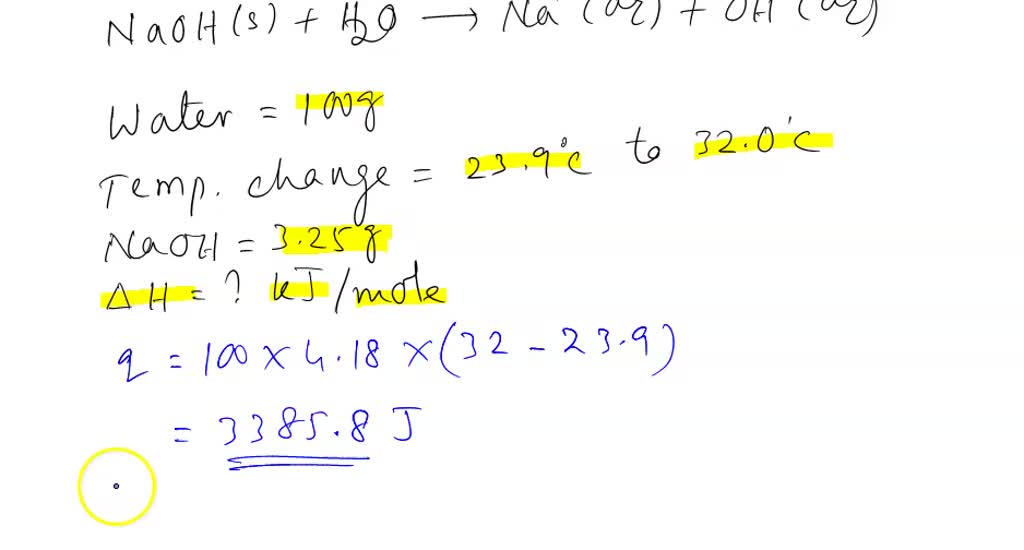 NaOH (s) + H2O → Na (aq) + OH (aq)
Water = 100g
Temp. change = 23.9°C to 32.0°C
NaOH = 3.25g
ΔH = ? kJ/mole
q = 100 × 4.18 × (32 - 23.9)
= 3385.8 J